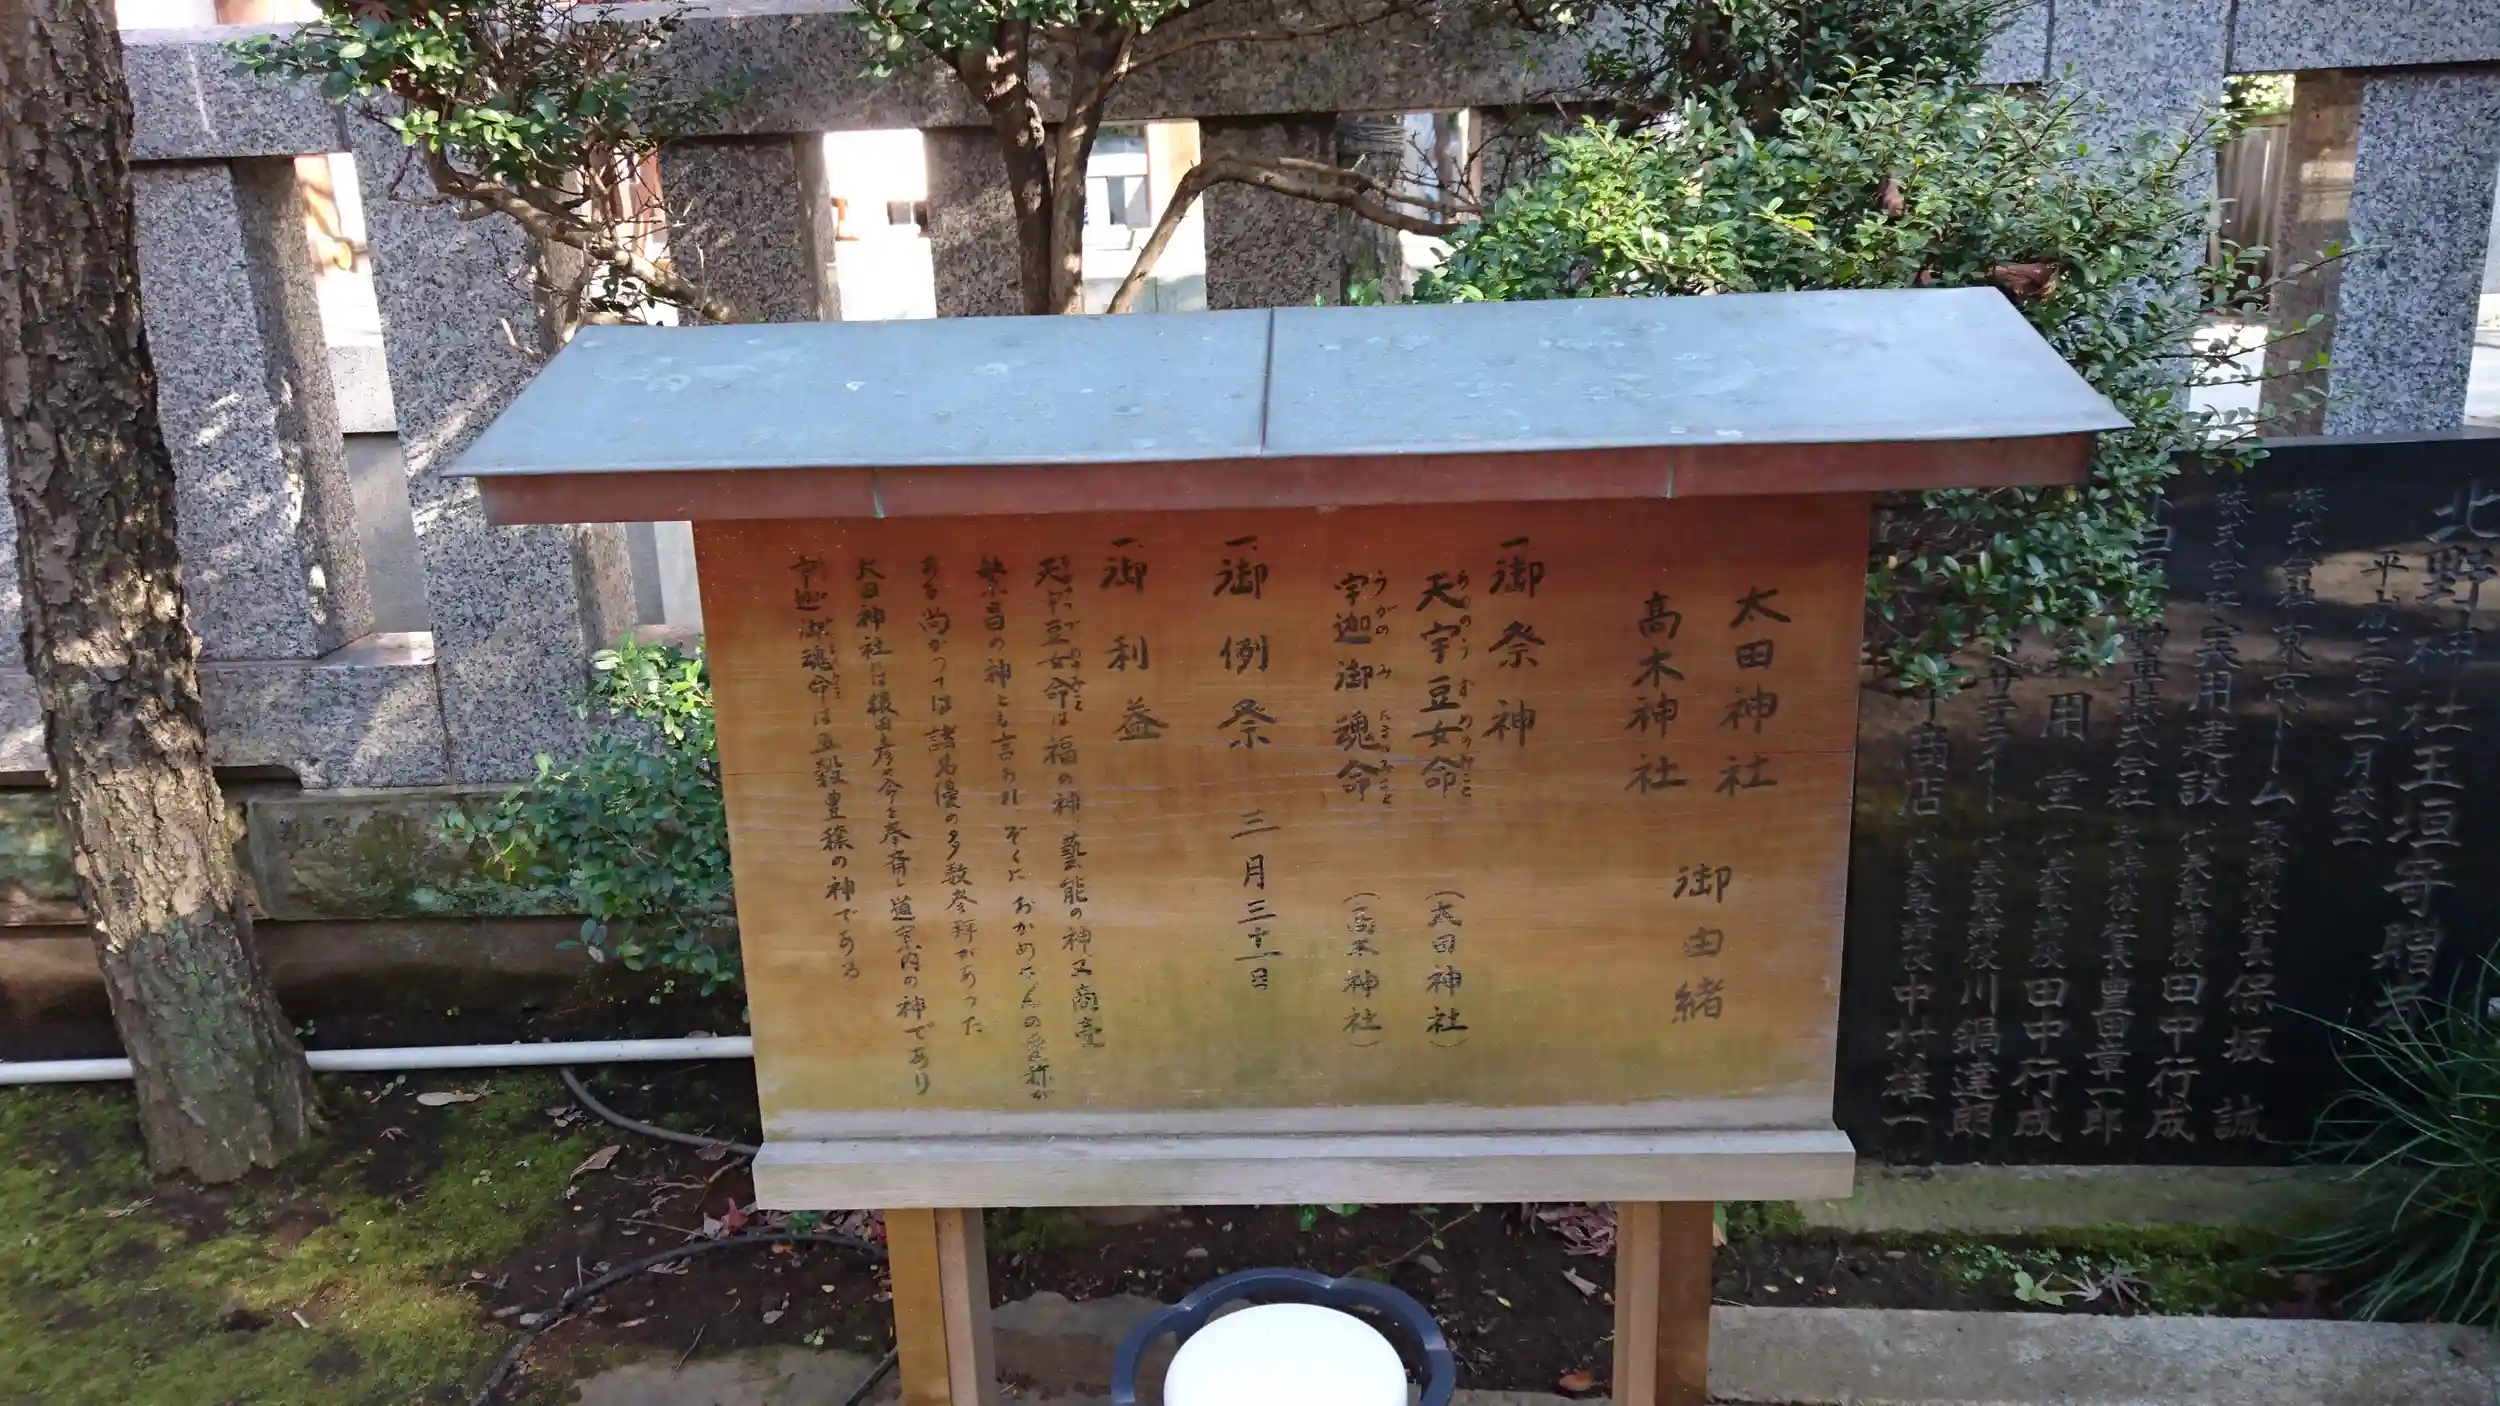 太田神社
高木神社
御由緒
一、御祭神
天宇豆女命（太田神社）
あめのうずめのみこと
宇迦御魂命（高木神社）
うがのみたまのみこと
一、御例祭 三月三十一日
一、御利益
天宇豆女命は福の神、藝能の神、又商売
繁昌の神とも言われ ぞくに おかめさんの愛称が
ある 尚かつては諸名優の多数参拝があった
太田神社には猿田彦命を奉斎し道案内の神であり
宇迦御魂命は五穀豊穣の神である
北野神社玉垣寄贈者
平成二十二月竣工
株式会社東京ドーム 取締役社長 保坂 誠
株式会社実用建設 代表取締役 田中行成
重株式会社 取締役社長 豊田章一郎
用堂 代表取締役 田中行成
代表取締役 川鍋達朗
商店 代表取締役 中村雄一